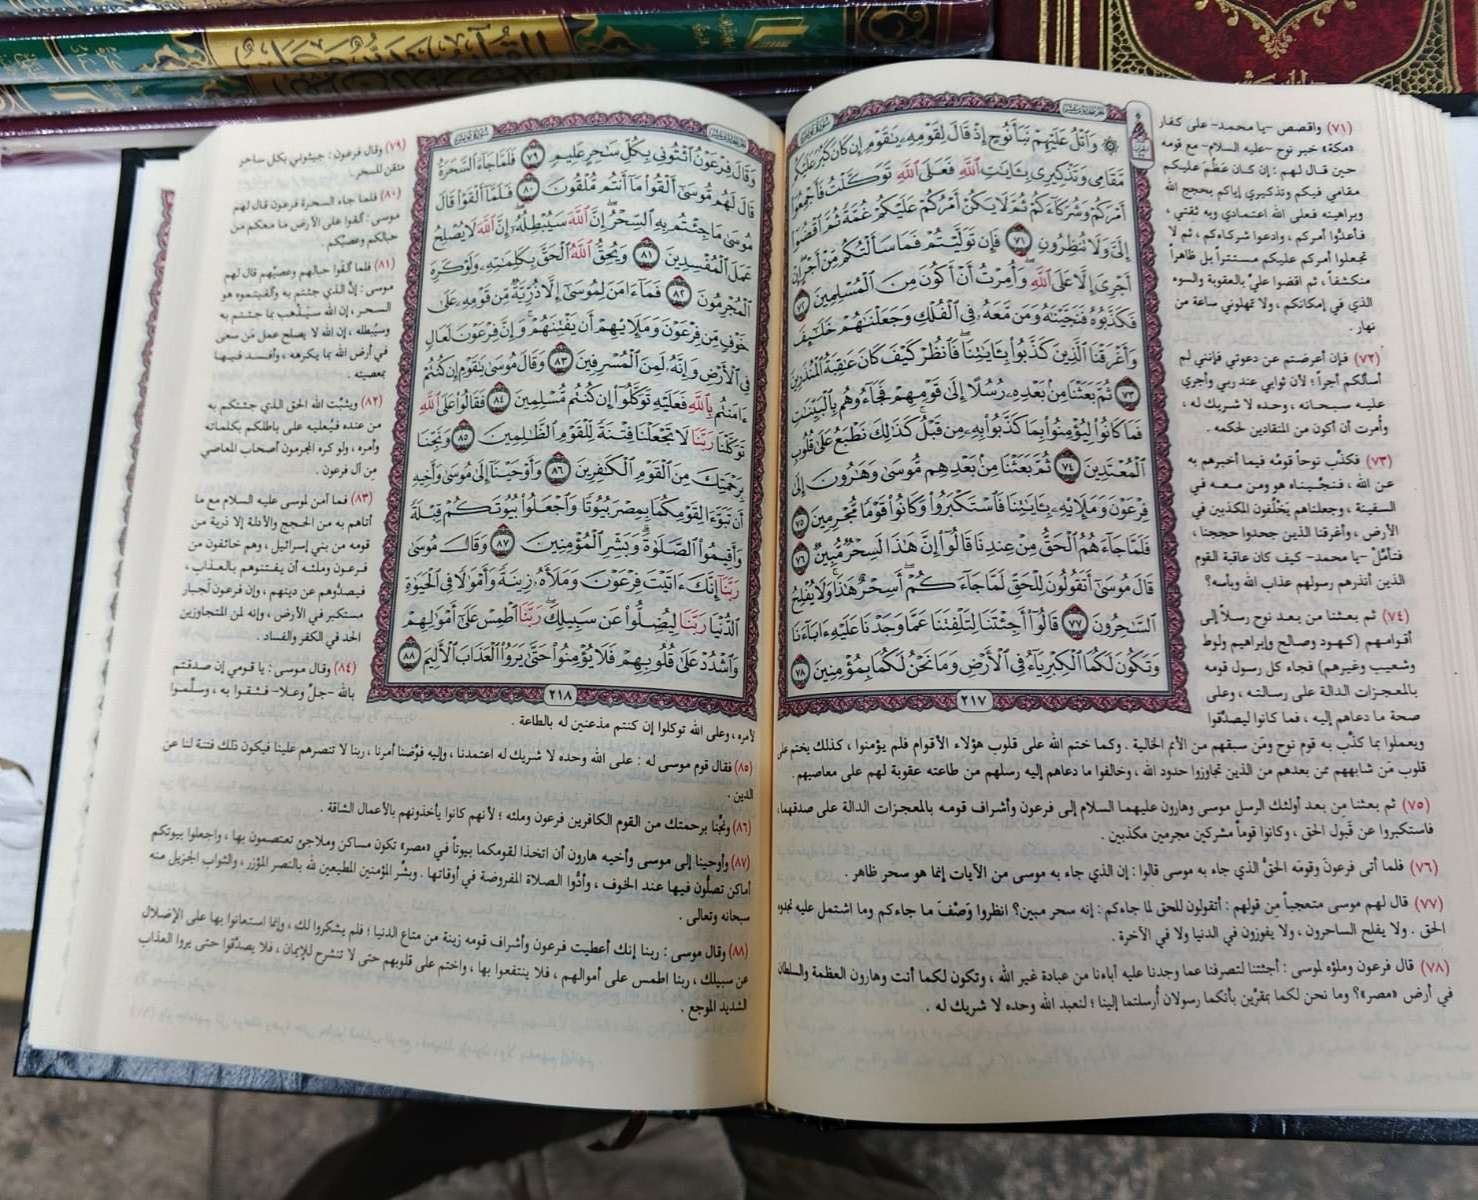 وَٱتْلُ عَلَيْهِمْ نَبَأَ نُوحٍ إِذْ قَالَ لِقَوْمِهِۦ يَٰقَوْمِ إِن كَانَ كَبُرَ عَلَيْكُم
مَّقَامِى وَتَذْكِيرِى بِـَٔايَٰتِ ٱللَّهِ فَعَلَى ٱللَّهِ تَوَكَّلْتُ فَأَجْمِعُوٓا۟
أَمْرَكُمْ وَشُرَكَآءَكُمْ ثُمَّ لَا يَكُنْ أَمْرُكُمْ عَلَيْكُمْ غُمَّةً ثُمَّ ٱقْضُوٓا۟
إِلَىَّ وَلَا تُنظِرُونِ ٧١ فَإِن تَوَلَّيْتُمْ فَمَا سَأَلْتُكُم مِّنْ أَجْرٍ إِنْ
أَجْرِىَ إِلَّا عَلَى ٱللَّهِ وَأُمِرْتُ أَنْ أَكُونَ مِنَ ٱلْمُسْلِمِينَ ٧٢
فَكَذَّبُوهُ فَنَجَّيْنَٰهُ وَمَن مَّعَهُۥ فِى ٱلْفُلْكِ وَجَعَلْنَٰهُمْ خَلَٰٓئِفَ
وَأَغْرَقْنَا ٱلَّذِينَ كَذَّبُوا۟ بِـَٔايَٰتِنَا فَٱنظُرْ كَيْفَ كَانَ عَٰقِبَةُ ٱلْمُنذَرِينَ
٧٣ ثُمَّ بَعَثْنَا مِنۢ بَعْدِهِۦ رُسُلًا إِلَىٰ قَوْمِهِمْ فَجَآءُوهُم بِٱلْبَيِّنَٰتِ
فَمَا كَانُوا۟ لِيُؤْمِنُوا۟ بِمَا كَذَّبُوا۟ بِهِۦ مِن قَبْلُ كَذَٰلِكَ نَطْبَعُ عَلَىٰ قُلُوبِ
ٱلْمُعْتَدِينَ ٧٤ ثُمَّ بَعَثْنَا مِنۢ بَعْدِهِم مُّوسَىٰ وَهَٰرُونَ إِلَىٰ
فِرْعَوْنَ وَمَلَإِي۟هِۦ بِـَٔايَٰتِنَا فَٱسْتَكْبَرُوا۟ وَكَانُوا۟ قَوْمًا مُّجْرِمِينَ ٧٥
فَلَمَّا جَآءَهُمُ ٱلْحَقُّ مِنْ عِندِنَا قَالُوٓا۟ إِنَّ هَٰذَا لَسِحْرٌ مُّبِينٌ ٧٦
قَالَ مُوسَىٰٓ أَتَقُولُونَ لِلْحَقِّ لَمَّا جَآءَكُمْ أَسِحْرٌ هَٰذَا وَلَا يُفْلِحُ
ٱلسَّٰحِرُونَ ٧٧ قَالُوٓا۟ أَجِئْتَنَا لِتَلْفِتَنَا عَمَّا وَجَدْنَا عَلَيْهِ ءَابَآءَنَا
وَتَكُونَ لَكُمَا ٱلْكِبْرِيَآءُ فِى ٱلْأَرْضِ وَمَا نَحْنُ لَكُمَا بِمُؤْمِنِينَ ٧٨
٢١٧
(٧١) واقصص -يا محمد- على كفار
«مكة» خبر نوح -عليه السلام- مع قومه
حين قال لهم : إن كان عَظُمَ عليكم
مقامي فيكم وتذكيري إياكم بحجج الله
وبراهينه فعلى الله اعتمادي وبه ثقتي ،
فأعدُّوا أمركم ، وادعوا شركاءكم ، ثم لا
تجعلوا أمركم عليكم مستتراً بل ظاهراً
منكشفاً ، ثم اقضوا عليَّ بالعقوبة والسوء
الذي في إمكانكم ، ولا تمهلوني ساعة من
نهار .
(٧٢) فإن أعرضتم عن دعوتي فإنني لم
أسألكم أجراً ؛ لأن ثوابي عند ربي وأجري
عليه سبحانه ، وحده لا شريك له ،
وأمرت أن أكون من المنقادين لحكمه .
(٧٣) فكذَّب نوحاً قومُه فيما أخبرهم به
عن الله ، فنجَّيناه هو ومن معه في
السفينة ، وجعلناهم يَخْلُفون المكذبين في
الأرض ، وأغرقنا الذين جحدوا حججنا ،
فتأمَّلْ -يا محمد- كيف كان عاقبة القوم
الذين أنذرهم رسولهم عذاب الله وبأسه؟
(٧٤) ثم بعثنا من بعد نوح رسلاً إلى
أقوامهم (كهود وصالح وإبراهيم ولوط
وشعيب وغيرهم) فجاء كل رسول قومه
بالمعجزات الدالة على رسالته ، وعلى
صحة ما دعاهم إليه ، فما كانوا ليصدِّقوا
ويعملوا بما كذَّب به قوم نوح ومَن سبقهم من الأمم الخالية . وكما ختم الله على قلوب هؤلاء الأقوام فلم يؤمنوا ، كذلك يختم على
قلوب مَن شابههم ممن بعدهم من الذين تجاوزوا حدود الله ، وخالفوا ما دعاهم إليه رسلهم من طاعته عقوبة لهم على معاصيهم .
(٧٥) ثم بعثنا من بعد أولئك الرسل موسى وهارون عليهما السلام إلى فرعون وأشراف قومه بالمعجزات الدالة على صدقهما،
فاستكبروا عن قَبول الحق ، وكانوا قوماً مشركين مجرمين مكذبين .
(٧٦) فلما أتى فرعونَ وقومَه الحقُّ الذي جاء به موسى قالوا : إن الذي جاء به موسى من الآيات إنما هو سحر ظاهر .
(٧٧) قال لهم موسى متعجباً من قولهم : أتقولون للحق لما جاءكم : إنه سحر مبين؟ انظروا وَصْفَ ما جاءكم وما اشتمل عليه تجدوه
الحق . ولا يفلح الساحرون ، ولا يفوزون في الدنيا ولا في الآخرة .
(٧٨) قال فرعون وملؤه لموسى : أجئتنا لتصرفنا عما وجدنا عليه آباءنا من عبادة غير الله ، وتكون لكما أنت وهارون العظمة والسلطان
في أرض «مصر»؟ وما نحن لكما بمقرِّين بأنكما رسولان أُرسلتما إلينا ؛ لنعبد الله وحده لا شريك له .
وَقَالَ فِرْعَوْنُ ٱئْتُونِى بِكُلِّ سَٰحِرٍ عَلِيمٍ ٧٩ فَلَمَّا جَآءَ ٱلسَّحَرَةُ
قَالَ لَهُم مُّوسَىٰٓ أَلْقُوا۟ مَآ أَنتُم مُّلْقُونَ ٨٠ فَلَمَّآ أَلْقَوْا۟ قَالَ
مُوسَىٰ مَا جِئْتُم بِهِ ٱلسِّحْرُ إِنَّ ٱللَّهَ سَيُبْطِلُهُۥٓ إِنَّ ٱللَّهَ لَا يُصْلِحُ
عَمَلَ ٱلْمُفْسِدِينَ ٨١ وَيُحِقُّ ٱللَّهُ ٱلْحَقَّ بِكَلِمَٰتِهِۦ وَلَوْ كَرِهَ
ٱلْمُجْرِمُونَ ٨٢ فَمَآ ءَامَنَ لِمُوسَىٰٓ إِلَّا ذُرِّيَّةٌ مِّن قَوْمِهِۦ عَلَىٰ
خَوْفٍ مِّن فِرْعَوْنَ وَمَلَإِي۟هِمْ أَن يَفْتِنَهُمْ وَإِنَّ فِرْعَوْنَ لَعَالٍ
فِى ٱلْأَرْضِ وَإِنَّهُۥ لَمِنَ ٱلْمُسْرِفِينَ ٨٣ وَقَالَ مُوسَىٰ يَٰقَوْمِ إِن كُنتُمْ
ءَامَنتُم بِٱللَّهِ فَعَلَيْهِ تَوَكَّلُوٓا۟ إِن كُنتُم مُّسْلِمِينَ ٨٤ فَقَالُوا۟ عَلَى ٱللَّهِ
تَوَكَّلْنَا رَبَّنَا لَا تَجْعَلْنَا فِتْنَةً لِّلْقَوْمِ ٱلظَّٰلِمِينَ ٨٥ وَنَجِّنَا
بِرَحْمَتِكَ مِنَ ٱلْقَوْمِ ٱلْكَٰفِرِينَ ٨٦ وَأَوْحَيْنَآ إِلَىٰ مُوسَىٰ وَأَخِيهِ
أَن تَبَوَّءَا لِقَوْمِكُمَا بِمِصْرَ بُيُوتًا وَٱجْعَلُوا۟ بُيُوتَكُمْ قِبْلَةً
وَأَقِيمُوا۟ ٱلصَّلَوٰةَ وَبَشِّرِ ٱلْمُؤْمِنِينَ ٨٧ وَقَالَ مُوسَىٰ
رَبَّنَآ إِنَّكَ ءَاتَيْتَ فِرْعَوْنَ وَمَلَأَهُۥ زِينَةً وَأَمْوَٰلًا فِى ٱلْحَيَوٰةِ
ٱلدُّنْيَا رَبَّنَا لِيُضِلُّوا۟ عَن سَبِيلِكَ رَبَّنَا ٱطْمِسْ عَلَىٰٓ أَمْوَٰلِهِمْ
وَٱشْدُدْ عَلَىٰ قُلُوبِهِمْ فَلَا يُؤْمِنُوا۟ حَتَّىٰ يَرَوُا۟ ٱلْعَذَابَ ٱلْأَلِيمَ ٨٨
٢١٨
(٧٩) وقال فرعون : جيئوني بكل ساحر
متقن للسحر .
(٨٠) فلما جاء السحرة فرعون قال لهم
موسى : ألقوا على الأرض ما معكم من
حبالكم وعصيِّكم .
(٨١) فلما ألقَوا حبالهم وعصيَّهم قال لهم
موسى : إنَّ الذي جئتم به وألقيتموه هو
السحر ، إن الله سيُذْهب ما جئتم به
وسيُبطله ، إن الله لا يصلح عمل مَن سعى
في أرض الله بما يكرهه ، وأفسد فيها
بمعصيته .
(٨٢) ويثبِّت الله الحق الذي جئتكم به
من عنده فيُعليه على باطلكم بكلماته
وأمره ، ولو كره المجرمون أصحاب المعاصي
مِن آل فرعون .
(٨٣) فما آمن لموسى عليه السلام مع ما
أتاهم به من الحجج والأدلة إلا ذرية من
قومه من بني إسرائيل ، وهم خائفون من
فرعون وملئه أن يفتنوهم بالعذاب ،
فيصدُّوهم عن دينهم ، وإن فرعون لَجبار
مستكبر في الأرض ، وإنه لمن المتجاوزين
الحد في الكفر والفساد .
(٨٤) وقال موسى : يا قومي إن صدقتم
بالله -جلَّ وعلا- فثقوا به ، وسلِّموا
لأمره ، وعلى الله توكلوا إن كنتم مذعنين له بالطاعة .
(٨٥) فقال قوم موسى له : على الله وحده لا شريك له اعتمدنا ، وإليه فوَّضنا أمرنا ، ربنا لا تنصرهم علينا فيكون ذلك فتنة لنا عن
الدين .
(٨٦) ونجِّنا برحمتك من القوم الكافرين فرعون وملئه ؛ لأنهم كانوا يأخذونهم بالأعمال الشاقة .
(٨٧) وأوحينا إلى موسى وأخيه هارون أن اتخذا لقومكما بيوتاً في «مصر» تكون مساكن وملاجئ تعتصمون بها ، واجعلوا بيوتكم
أماكن تصلُّون فيها عند الخوف ، وأدُّوا الصلاة المفروضة في أوقاتها . وبشِّر المؤمنين المطيعين لله بالنصر المؤزر ، والثواب الجزيل منه
سبحانه وتعالى .
(٨٨) وقال موسى : ربنا إنك أعطيت فرعون وأشراف قومه زينة من متاع الدنيا ؛ فلم يشكروا لك ، وإنما استعانوا بها على الإضلال
عن سبيلك ، ربنا اطمس على أموالهم ، فلا ينتفعوا بها ، واختم على قلوبهم حتى لا تنشرح للإيمان ، فلا يصدِّقوا حتى يروا العذاب
الشديد الموجع .